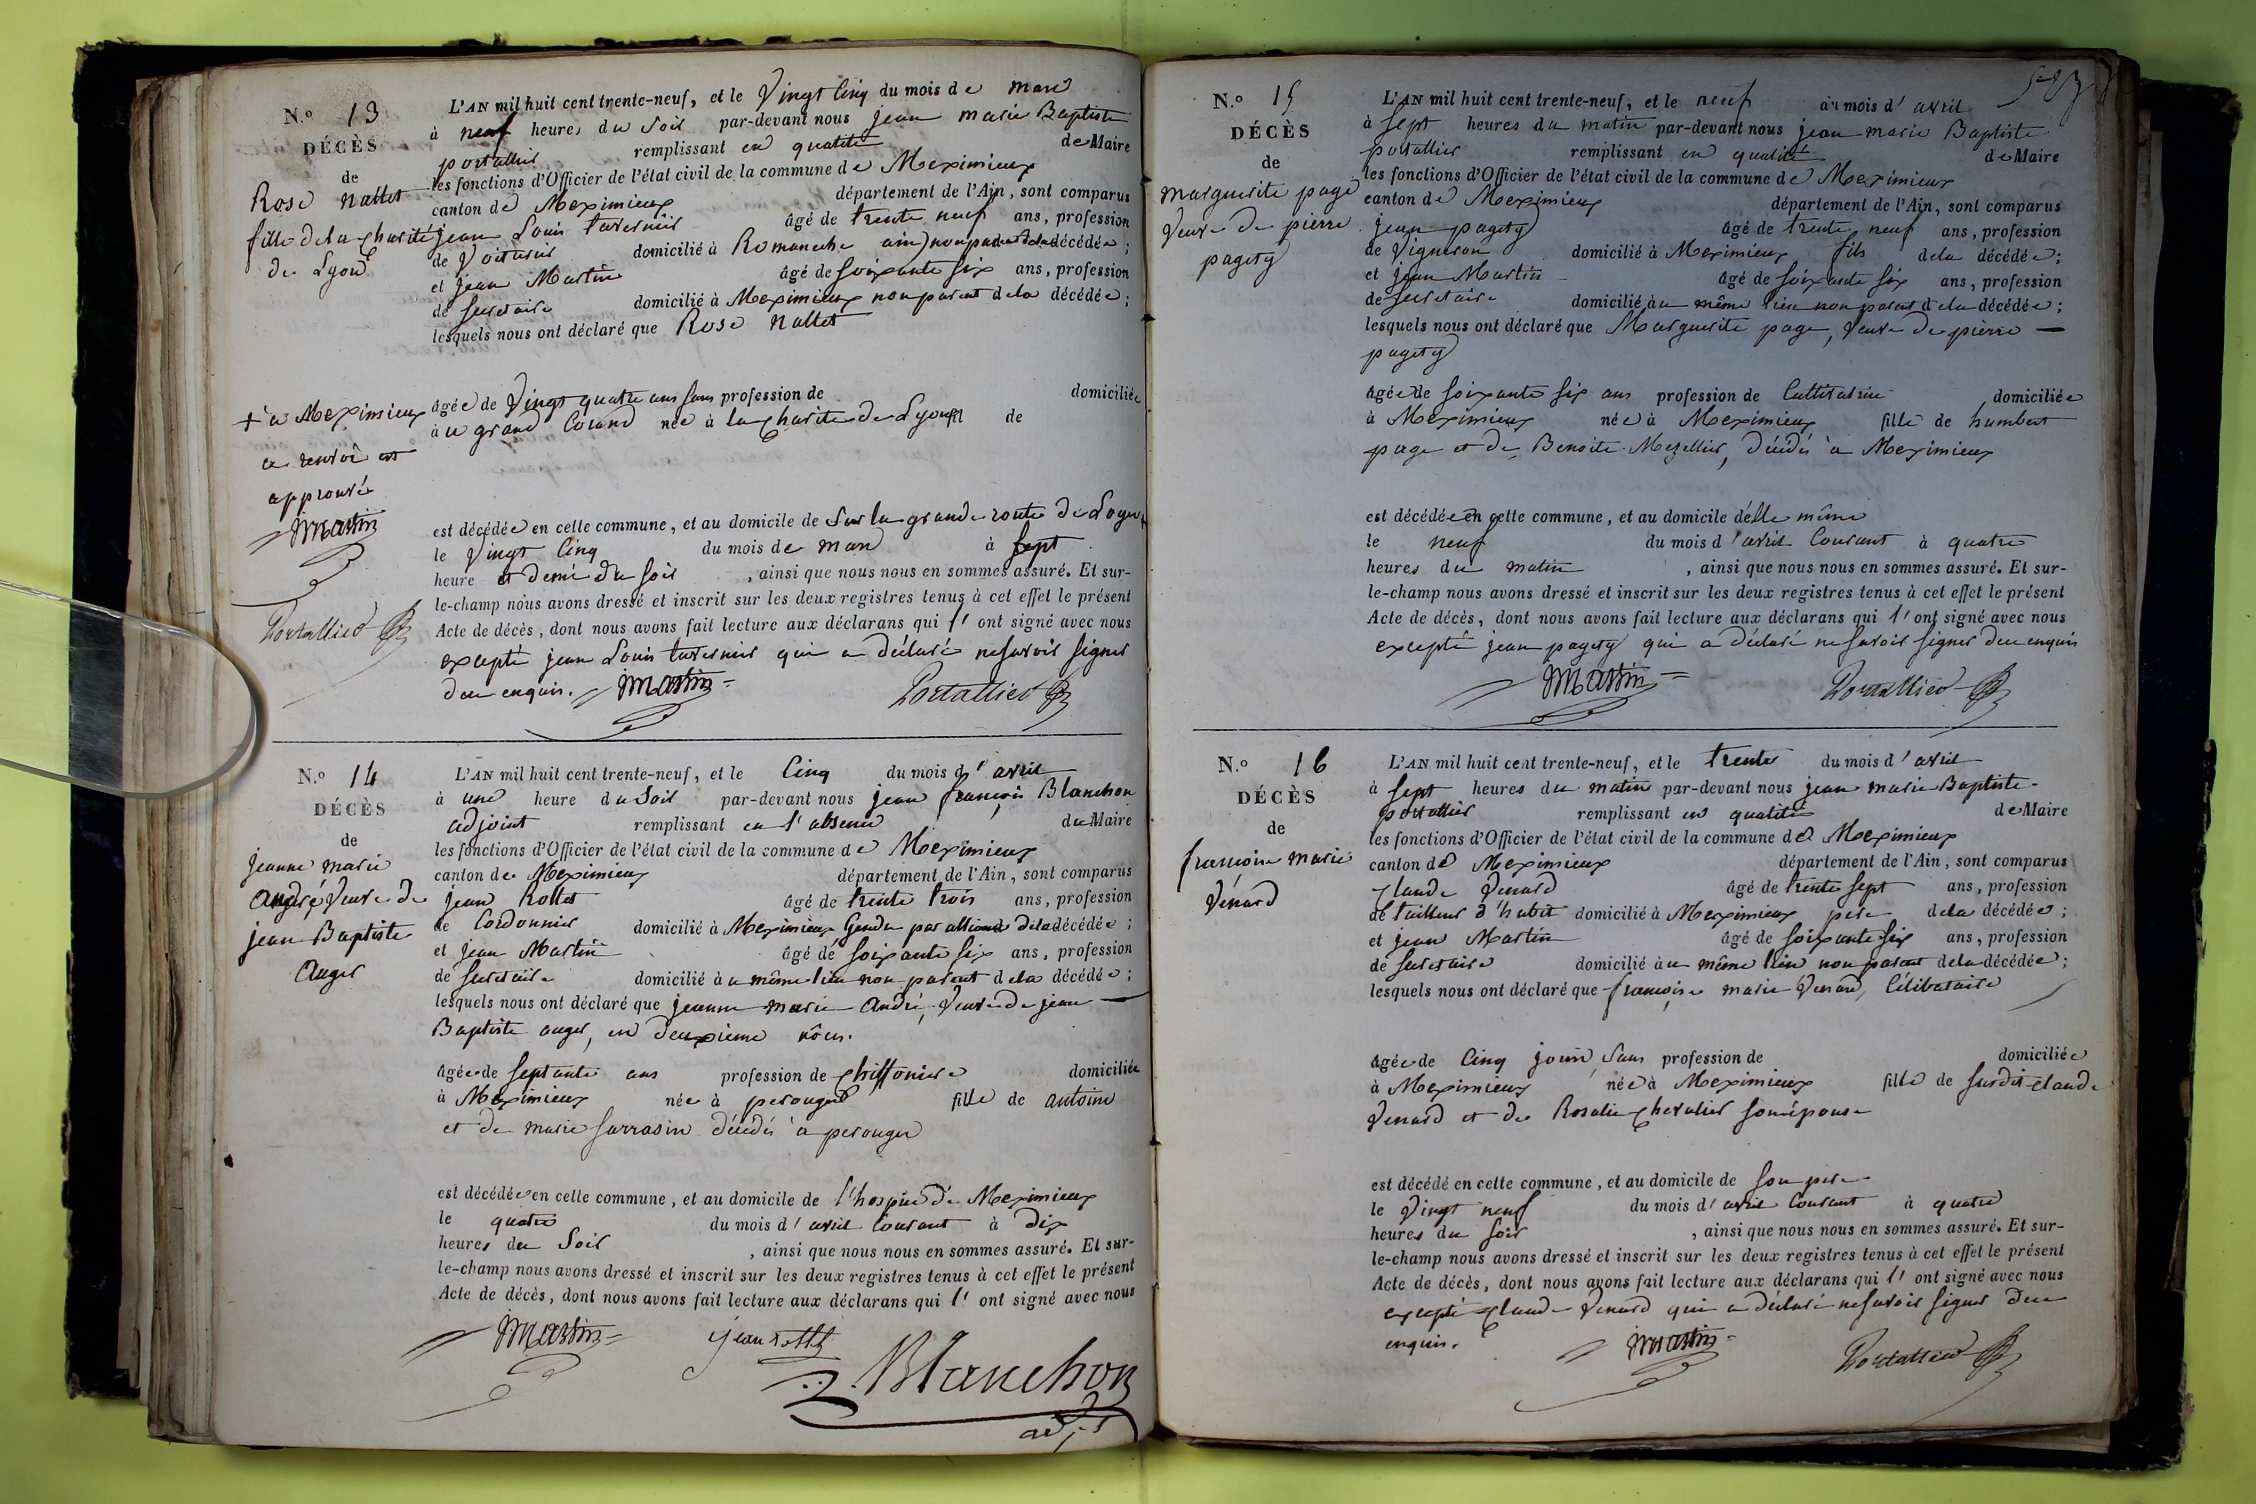 N.º 13
DÉCÈS
de
Rose Nallet
fille de la charité
de Lyon
L'AN mil huit cent trente-neuf, et le vingt cinq du mois de mars
à neuf heures du soir par-devant nous jean marie Baptiste
portallier remplissant en qualité de Maire
les fonctions d'Officier de l'état civil de la commune de Meximieux
canton de Meximieux département de l'Ain, sont comparus
jean Louis tavernier âgé de trente neuf ans, profession
de voiturier domicilié à Romaneche ain) non parent de la décédée ;
et jean Martin âgé de soixante six ans, profession
de secretaire domicilié à Meximieux non parent de la décédée ;
lesquels nous ont déclaré que Rose Nallet
âgée de vingt quatre ans sans profession de domiciliée
à u grand née à la charité de Lyon de
+ à Meximieux
ce renvoi est
approuvé
Martin
Portallier
est décédée en cette commune, et au domicile de sur la grande route de Lyon +
le vingt cinq du mois de mars à sept
heure et demi du soir , ainsi que nous nous en sommes assuré. Et sur-
le-champ nous avons dressé et inscrit sur les deux registres tenus à cet effet le présent
Acte de décès, dont nous avons fait lecture aux déclarans qui l' ont signé avec nous
excepté jean Louis tavernier qui a déclaré ne savoir signer
de ce enquis. Martin Portallier
N.º 14
DÉCÈS
de
jeanne marie
André, veuve de
jean Baptiste
Auger
L'AN mil huit cent trente-neuf, et le cinq du mois d' avril
à une heure du soir par-devant nous jean françois Blanchon
adjoint remplissant en l'absence du Maire
les fonctions d'Officier de l'état civil de la commune de Meximieux
canton de Meximieux département de l'Ain, sont comparus
jean Rollet âgé de trente trois ans, profession
de Cordonnier domicilié à Meximieux Gendre par alliance de la décédée ;
et jean Martin âgé de soixante six ans, profession
de secretaire domicilié à u même lieu non parent de la décédée ;
lesquels nous ont déclaré que jeanne marie André, veuve de jean
Baptiste auger, en deuxieme nôces.
âgée de septante ans profession de chiffoniere domiciliée
à Meximieux née à perouges fille de antoine
et de marie sarrasin décédés à perouges
est décédée en cette commune, et au domicile de l'hospice de Meximieux
le quatre du mois d' avril courant à dix
heures du soir , ainsi que nous nous en sommes assuré. Et sur-
le-champ nous avons dressé et inscrit sur les deux registres tenus à cet effet le présent
Acte de décès, dont nous avons fait lecture aux déclarans qui l' ont signé avec nous
Martin jean rollet
Blanchon
adj
N.º 15
DÉCÈS
de
marguerite page
veuve de pierre
pagety
L'AN mil huit cent trente-neuf, et le neuf du mois d' avril
à sept heures du matin par-devant nous jean marie Baptiste
portallier remplissant en qualité de Maire
les fonctions d'Officier de l'état civil de la commune de Meximieux
canton de Meximieux département de l'Ain, sont comparus
jean pagety âgé de trente neuf ans, profession
de vigneron domicilié à Meximieux fils de la décédée ;
et jean Martin âgé de soixante six ans, profession
de secretaire domicilié à u même lieu non parent de la décédée ;
lesquels nous ont déclaré que Marguerite page, veuve de pierre
pagety
âgée de soixante six ans profession de Cultivatrice domiciliée
à Meximieux née à Meximieux fille de humbert
page et de Benoite Mezellier, décédés à Meximieux
est décédée en cette commune, et au domicile d'elle même
le neuf du mois d' avril courant à quatre
heures du matin , ainsi que nous nous en sommes assuré. Et sur-
le-champ nous avons dressé et inscrit sur les deux registres tenus à cet effet le présent
Acte de décès, dont nous avons fait lecture aux déclarans qui l' ont signé avec nous
excepté jean pagety qui a déclaré ne savoir signer de ce enquis
Martin Portallier
N.º 16
DÉCÈS
de
françoise marie
Venard
L'AN mil huit cent trente-neuf, et le trente du mois d' avril
à sept heures du matin par-devant nous jean marie Baptiste
portallier remplissant en qualité de Maire
les fonctions d'Officier de l'état civil de la commune de Meximieux
canton de Meximieux département de l'Ain, sont comparus
Claude Venard âgé de trente sept ans, profession
de tailleur d'habit domicilié à Meximieux pere de la décédée ;
et jean Martin âgé de soixante six ans, profession
de secretaire domicilié à u même lieu non parent de la décédée ;
lesquels nous ont déclaré que françoise marie Venard, Célibataire
âgée de cinq jours, sans profession de domiciliée
à Meximieux née à Meximieux fille de susdit claude
Venard et de Rosalie chevalier son épouse
est décédé en cette commune, et au domicile de son pere
le vingt neuf du mois d' avril courant à quatre
heures du soir , ainsi que nous nous en sommes assuré. Et sur-
le-champ nous avons dressé et inscrit sur les deux registres tenus à cet effet le présent
Acte de décès, dont nous avons fait lecture aux déclarans qui l' ont signé avec nous
excepté claude Venard qui a déclaré ne savoir signer de ce
enquis. Martin Portallier